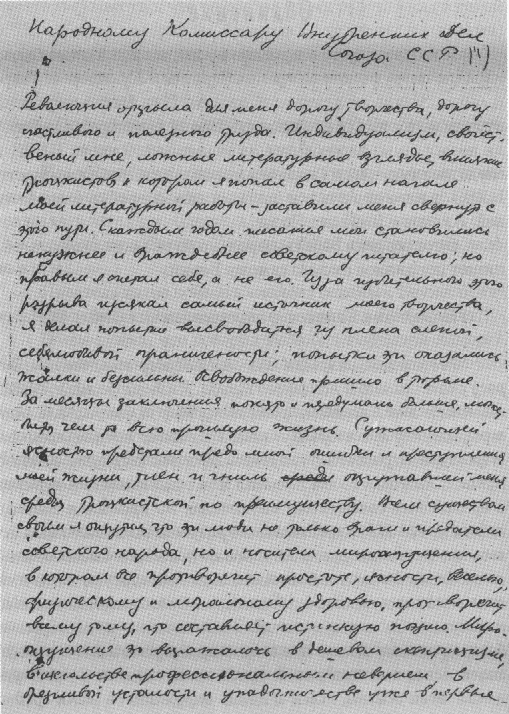 Народному Комиссару Внутренних Дел
Союза ССР
Революция открыла для меня дорогу творчества, дорогу
счастливого и полезного труда. Индивидуализм, свойст-
венный мне, ложные литературные взгляды, влияние
троцкистов, к которым я попал в самом начале
моей литературной работы – заставили меня свернуть с
этого пути. С каждым годом писания мои становились
ненужнее и враждебнее советскому читателю; но
правым я считал себя, а не его. Из за губительного этого
разрыва иссякал самый источник моего творчества,
я делал попытки высвободиться из плена слепой,
себялюбивой ограниченности; попытки эти оказались
жалки и бессильны. Освобождение пришло в тюрьме.
За месяцы заключения понято и передумано больше, может
быть, чем за всю прошлую жизнь. С ужасающей
ясностью предстали предо мной ошибки и преступления
моей жизни, тлен и гниль окружавшей меня
среды, троцкистской по преимуществу. Всем существом
своим я ощутил, что эти люди не только враги и предатели
советского народа, но и носители мироощущения,
в котором все противоречит простоте, ясности, веселью,
физическому и моральному здоровью, противоречит
всему тому, что составляет истинную поэзию. Миро-
ощущение это выражалось в дешевом скептицизме,
в бахвальстве профессиональным неверием, в
брезгливой усталости и упадничестве уже в первые